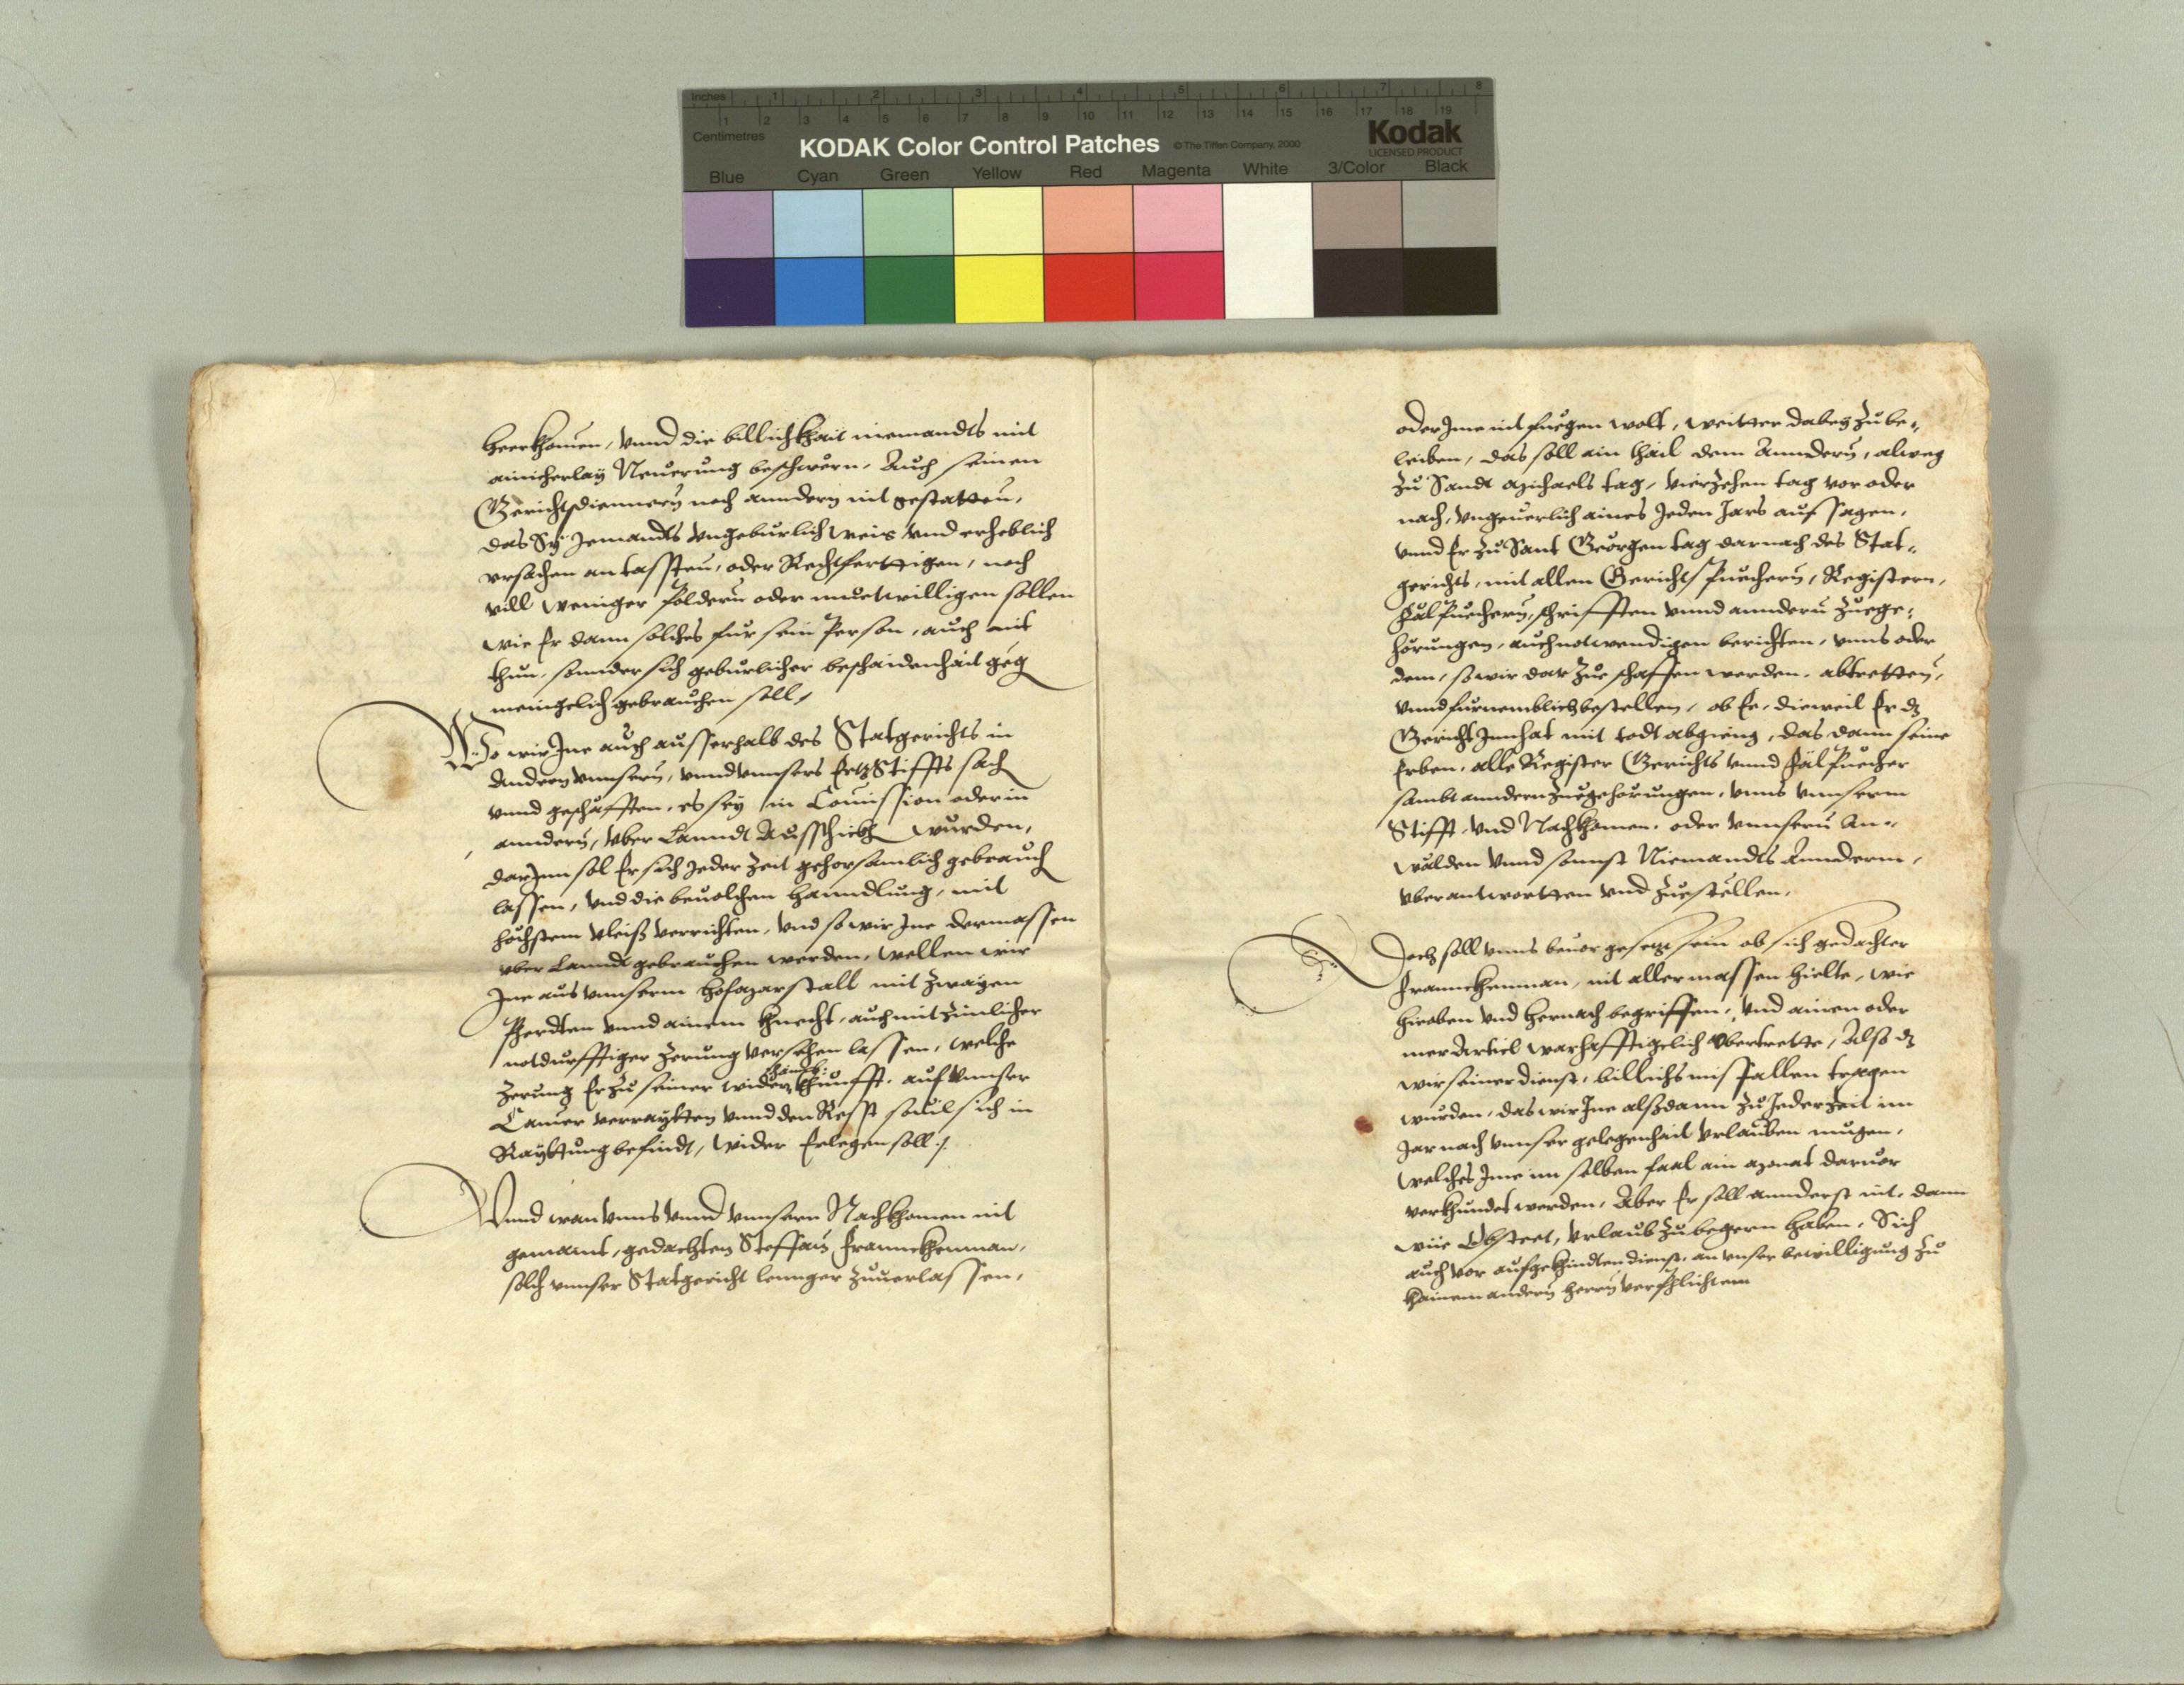 Inches 1 2 3 4 5 6 7 8
1 2 3 4 5 6 7 8 9 10 11 12 13 14 15 16 17 18 19
Centimetres
KODAK Color Control Patches © The Tiffen Company, 2000
Kodak
LICENSED PRODUCT
Blue Cyan Green Yellow Red Magenta White 3/Color Black
heerkhomen, vnnd die billichkhait niemandts mit
ainicherlay Neuerung beschwern, Auch seinen
Gerichtsdiennern noch anndern nit gestatten,
das Sy Jemandts vngeburlich weis vnd erheblich
vrsachen antassten, oder Rechtferttigen, noch
vill weniger földern oder muetwilligen sollen
wie Er dann solches fur sein Person, auch nit
thun, sonnder sich geburlicher beschaidenhait geg
menigelich gebrauchen soll,
Wo wir Jne auch ausserhalb des Statgerichts in
Andern vnnsern, vnnd vnnsers ErtzStiffts sach
vnnd geschäfften, es sey in Comission oder in
anndern, vber Lanndt Ausschickh wurden,
darJnn sol Er sich Jeder Zeit gehorsamlich gebrauch
lassen, vnd die beuolchen hanndlung, mit
höchstem vleiß verrichten, vnd so wir Jne dermassen
vber Lanndt gebrauchen werden, wellen wir
Jne aus vnnserm hofmarstall mit zwayen
Pherdten vnnd ainem Knecht, auch mit zimlicher
notdurfftiger zerung versehen lassen, welche
zerung Er zu seiner wider khunfft, auf vnnser
Camer verraytten vnnd den Resst souil sich in
Rayttung befindt, wider Erlegen soll /.
Vnnd wan vnns vnnd vnnsern Nachkhomen nit
gemaint, gedachten Steffan Franckhenman,
solch vnnser Statgericht lennger zuuerlassen,
oder Jme nit fuegen wolt, weitter dabey zu be,
leiben, das soll ain thail dem Anndern, alweg
zu Sandt Michaels tag, vierzehen tag vor oder
nach, vngeuerlich aines Jeden Jars aufsagen,
vnnd Er zu Sant Georgen tag darnach des Stat,
gerichts, mit allen Gerichts Puechern, Registern,
Fäl Puechern, schrifften vnnd anndern Zuege,
hörungen, auch notwendigen berichten, vnns oder
dem, so wir darzue schaffen werden, abtretten,
vnnd furnemblich bestellen, ob Er, dieweil Er dz
Gericht Jnnhat mit todt abgieng, das dann seine
Erben, alle Register Gerichts vnnd Fäl Puecher
sambt anndern Zuegehörungen, vnns vnnserm
Stifft vnd Nachkhomen, oder vnnsern An,
wälden vnnd sonnst Niemandts Annderm,
vberantwortten vnd Zuestellen.
Doch soll vnns beuor gesetzt sein ob sich gedachter
Franckhenman, nit allermassen hielte, wie
hieoben vnd hernach begriffen, vnd ainen oder
mer Artiel warhafftigelich vbertrette, Also dz
wir seiner dienst, billichs misfallen tragen
wurden, das wir Jne alßdann zu Jeder Zeit im
Jar nach vnnser gelegenhait vrlauben mugen,
welches Jme im selben faal ain Monat daruor
verkhundet werden, Aber Er soll annderst nit, dann
wie Obsteet, vrlaub zu begern haben, Sich
auch vor aufgekhindten dienst, an vnser bewilligung zu
khainem andern herrn verphlichten